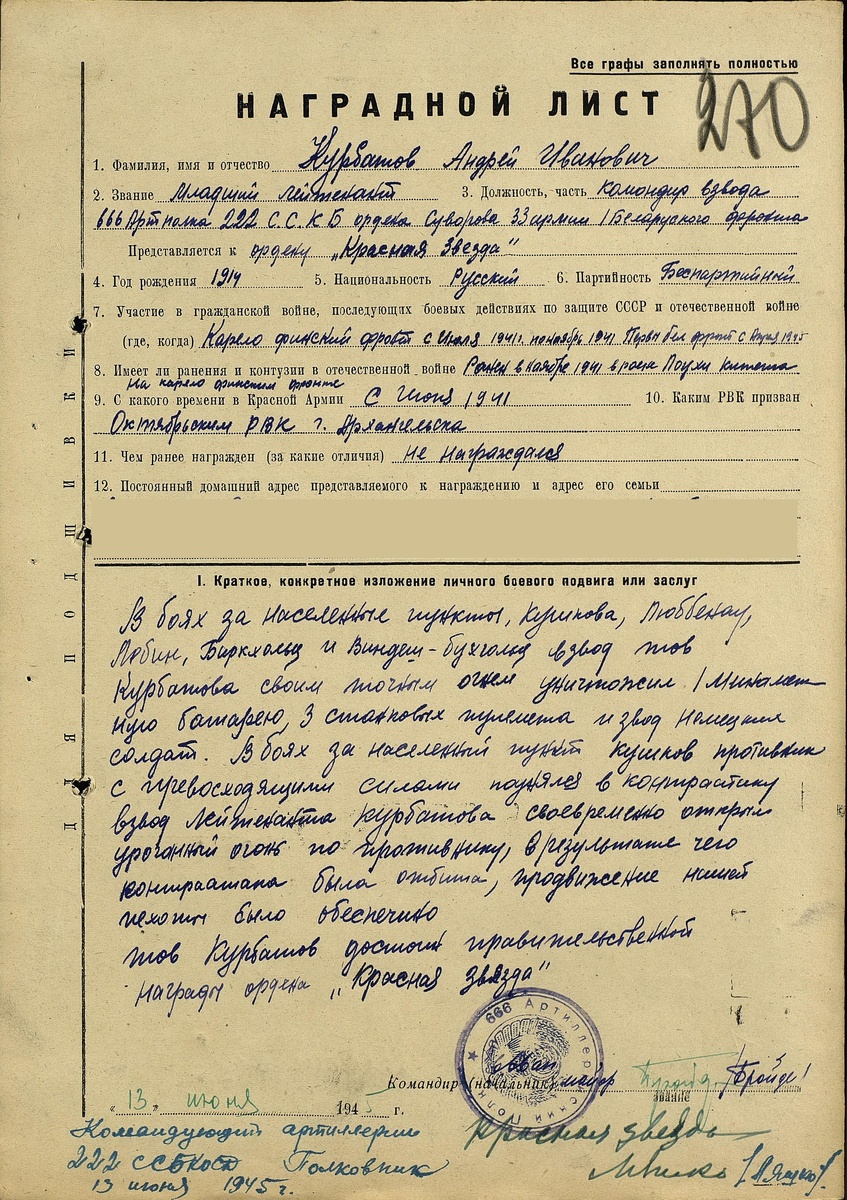 Все графы заполнять полностью
270
НАГРАДНОЙ ЛИСТ
1. Фамилия, имя и отчество Курбатов Андрей Иванович
2. Звание Младший лейтенант 3. Должность, часть командир взвода
666 Артполка 222 С.С.К.Б ордена Суворова 33 армии 1 Беларуского фронта
Представляется к ордену „Красная Звезда"
4. Год рождения 1914 5. Национальность Русский 6. Партийность Беспартийный
7. Участие в гражданской войне, последующих боевых действиях по защите СССР и отечественной войне
(где, когда) Карело финский фронт с Июля 1941г. по ноябрь 1941 Первы бел фронт с Апреля 1945
8. Имеет ли ранения и контузии в отечественной войне Ранен в ноябре 1941 в раене Лоухи Кистеньга
на карело финском фронте
9. С какого времени в Красной Армии с Июня 1941 10. Каким РВК призван
Октябрьским РВК г. Архангельска
11. Чем ранее награжден (за какие отличия) не награждался
12. Постоянный домашний адрес представляемого к награждению и адрес его семьи
ДЛЯ ПОДШИВКИ
I. Краткое, конкретное изложение личного боевого подвига или заслуг
В боях за населенные пункты, Кушкова, Люббенау,
Любин, Биркхольц и Виндеш-бухгольц взвод тов
Курбатова своим точным огнем уничтожил 1 Минамет-
ную батарею, 3 станковых пулемета и звод Немецких
солдат. В боях за населенный пункт Кушков противник
с превосходящими силами поднялся в контратаку
взвод Лейтенанта Курбатова своевременно открыл
ураганный огонь по противнику, в результате чего
контратака была отбита, продвижение нашей
пехоты было обеспечино
тов Курбатов достоин правительственной
награды ордена „Красная звезда"
666 Артиллерийский Полк
Командир (начальник) майор /Бройде/
звание
„13" июня 1945 г.
Командующий артиллерии
222 Полковник
13 июня 1945г.
Красная звезда